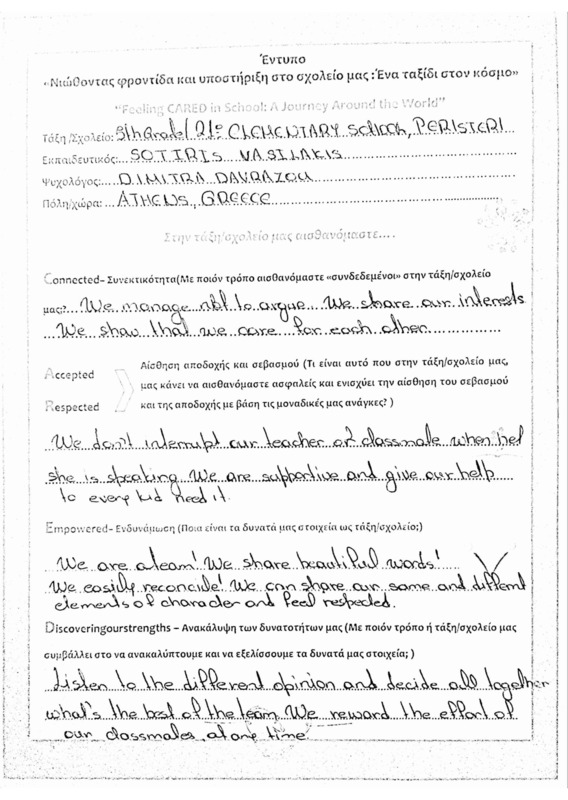 Έντυπο
«Νιώθοντας φροντίδα και υποστήριξη στο σχολείο μας :Ένα ταξίδι στον κόσμο»
"Feeling CARED in School: A Journey Around the World"
Τάξη /Σχολείο: 5thGrade/21° ELEMENTARY SCHOOL, PERISTERI
Εκπαιδευτικός: SOTIRIS VASILAKIS
Ψυχολόγος: DIMITRA DAVRAZOU
Πόλη/χώρα: ATHENS, GREECE
Στην τάξη/σχολείο μας αισθανόμαστε….
Connected– Συνεκτικότητα(Με ποιόν τρόπο αισθανόμαστε «συνδεδεμένοι» στην τάξη/σχολείο
μας? We manage not to argue. We share our interests
We show that we care for each other
Αίσθηση αποδοχής και σεβασμού (Τι είναι αυτό που στην τάξη/σχολείο μας,
Accepted
μας κάνει να αισθανόμαστε ασφαλείς και ενισχύει την αίσθηση του σεβασμού
Respected
και της αποδοχής με βάση τις μοναδικές μας ανάγκες? )
We don't interrupt our teacher or classmate when he/
she is speaking. We are supportive and give our help
to every kid need it.
Empowered– Ενδυνάμωση (Ποια είναι τα δυνατά μας στοιχεία ως τάξη/σχολείο;)
We are a team! We share beautiful words!
We easily reconcile! We can share our same and different
elements of character and feel respected.
Discoveringourstrengths – Ανακάλυψη των δυνατοτήτων μας (Με ποιόν τρόπο ή τάξη/σχολείο μας
συμβάλλει στο να ανακαλύπτουμε και να εξελίσσουμε τα δυνατά μας στοιχεία; )
Listen to the different opinion and decide all together
what's the best of the team. We reward the effort of
our classmates, at any time!